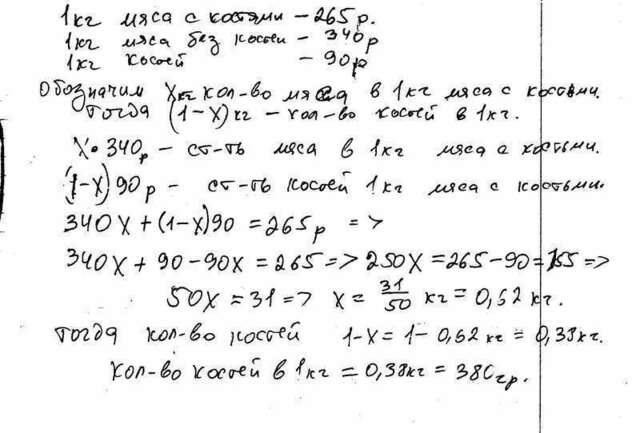 1кг мяса с костями – 265р.
1кг мяса без костей – 340р
1кг костей – 90р
Обозначим Xкг кол-во мяса в 1кг мяса с костями.
тогда (1-X)кг – кол-во костей в 1кг.
X•340р – ст-ть мяса в 1кг мяса с костьми.
(1-X)90р – ст-ть костей 1кг мяса с костьми.
340X + (1-X)90 = 265р =>
340X + 90 - 90X = 265 => 250X = 265-90 = 155 =>
50X = 31 => X = 31/50 кг = 0,62 кг.
тогда кол-во костей 1-X = 1 - 0,62 кг = 0,38кг.
кол-во костей в 1кг = 0,38кг = 380гр.